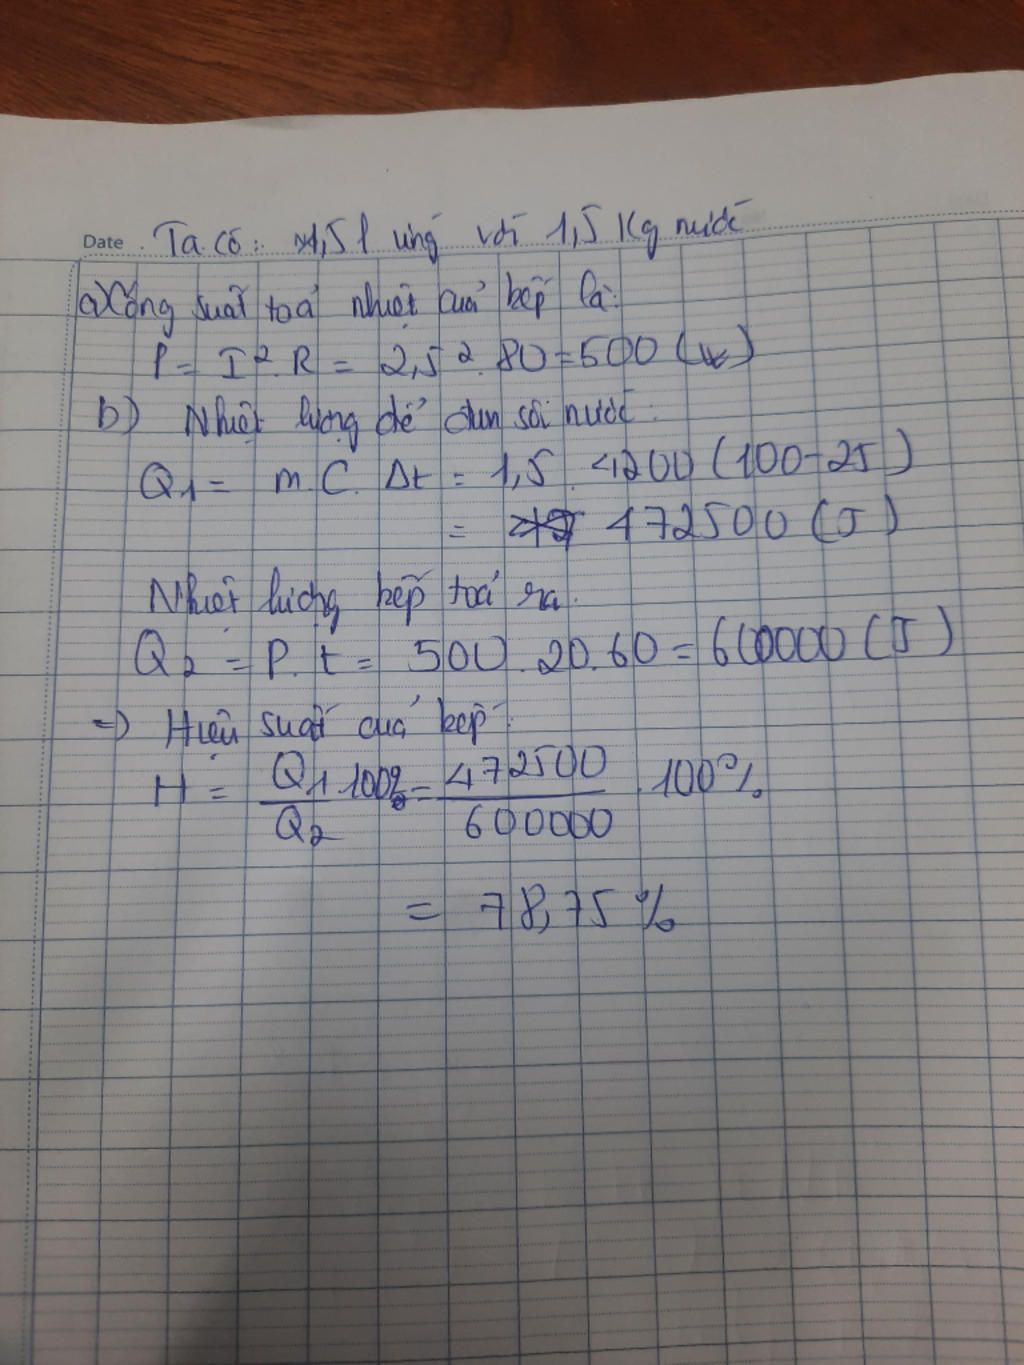 Date . Ta có: 1,5 l ứng với 1,5 Kg nước
a) Công suất toả nhiệt của bếp là:
P = I². R = 2,5². 80 = 500 (W)
b) Nhiệt lượng để đun sôi nước:
Q1 = m.C. Δt = 1,5 . 4200 (100-25)
= 472500 (J)
Nhiệt lượng bếp toả ra.
Q2 = P. t = 500 . 20. 60 = 600000 (J)
=> Hiệu suất của bếp:
H = Q1/Q2 . 100% = 472500/600000 . 100%
= 78,75 %